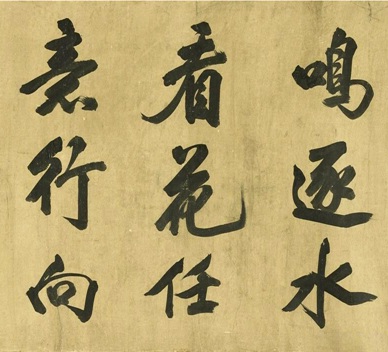 鳴逐水
看花任
意行向